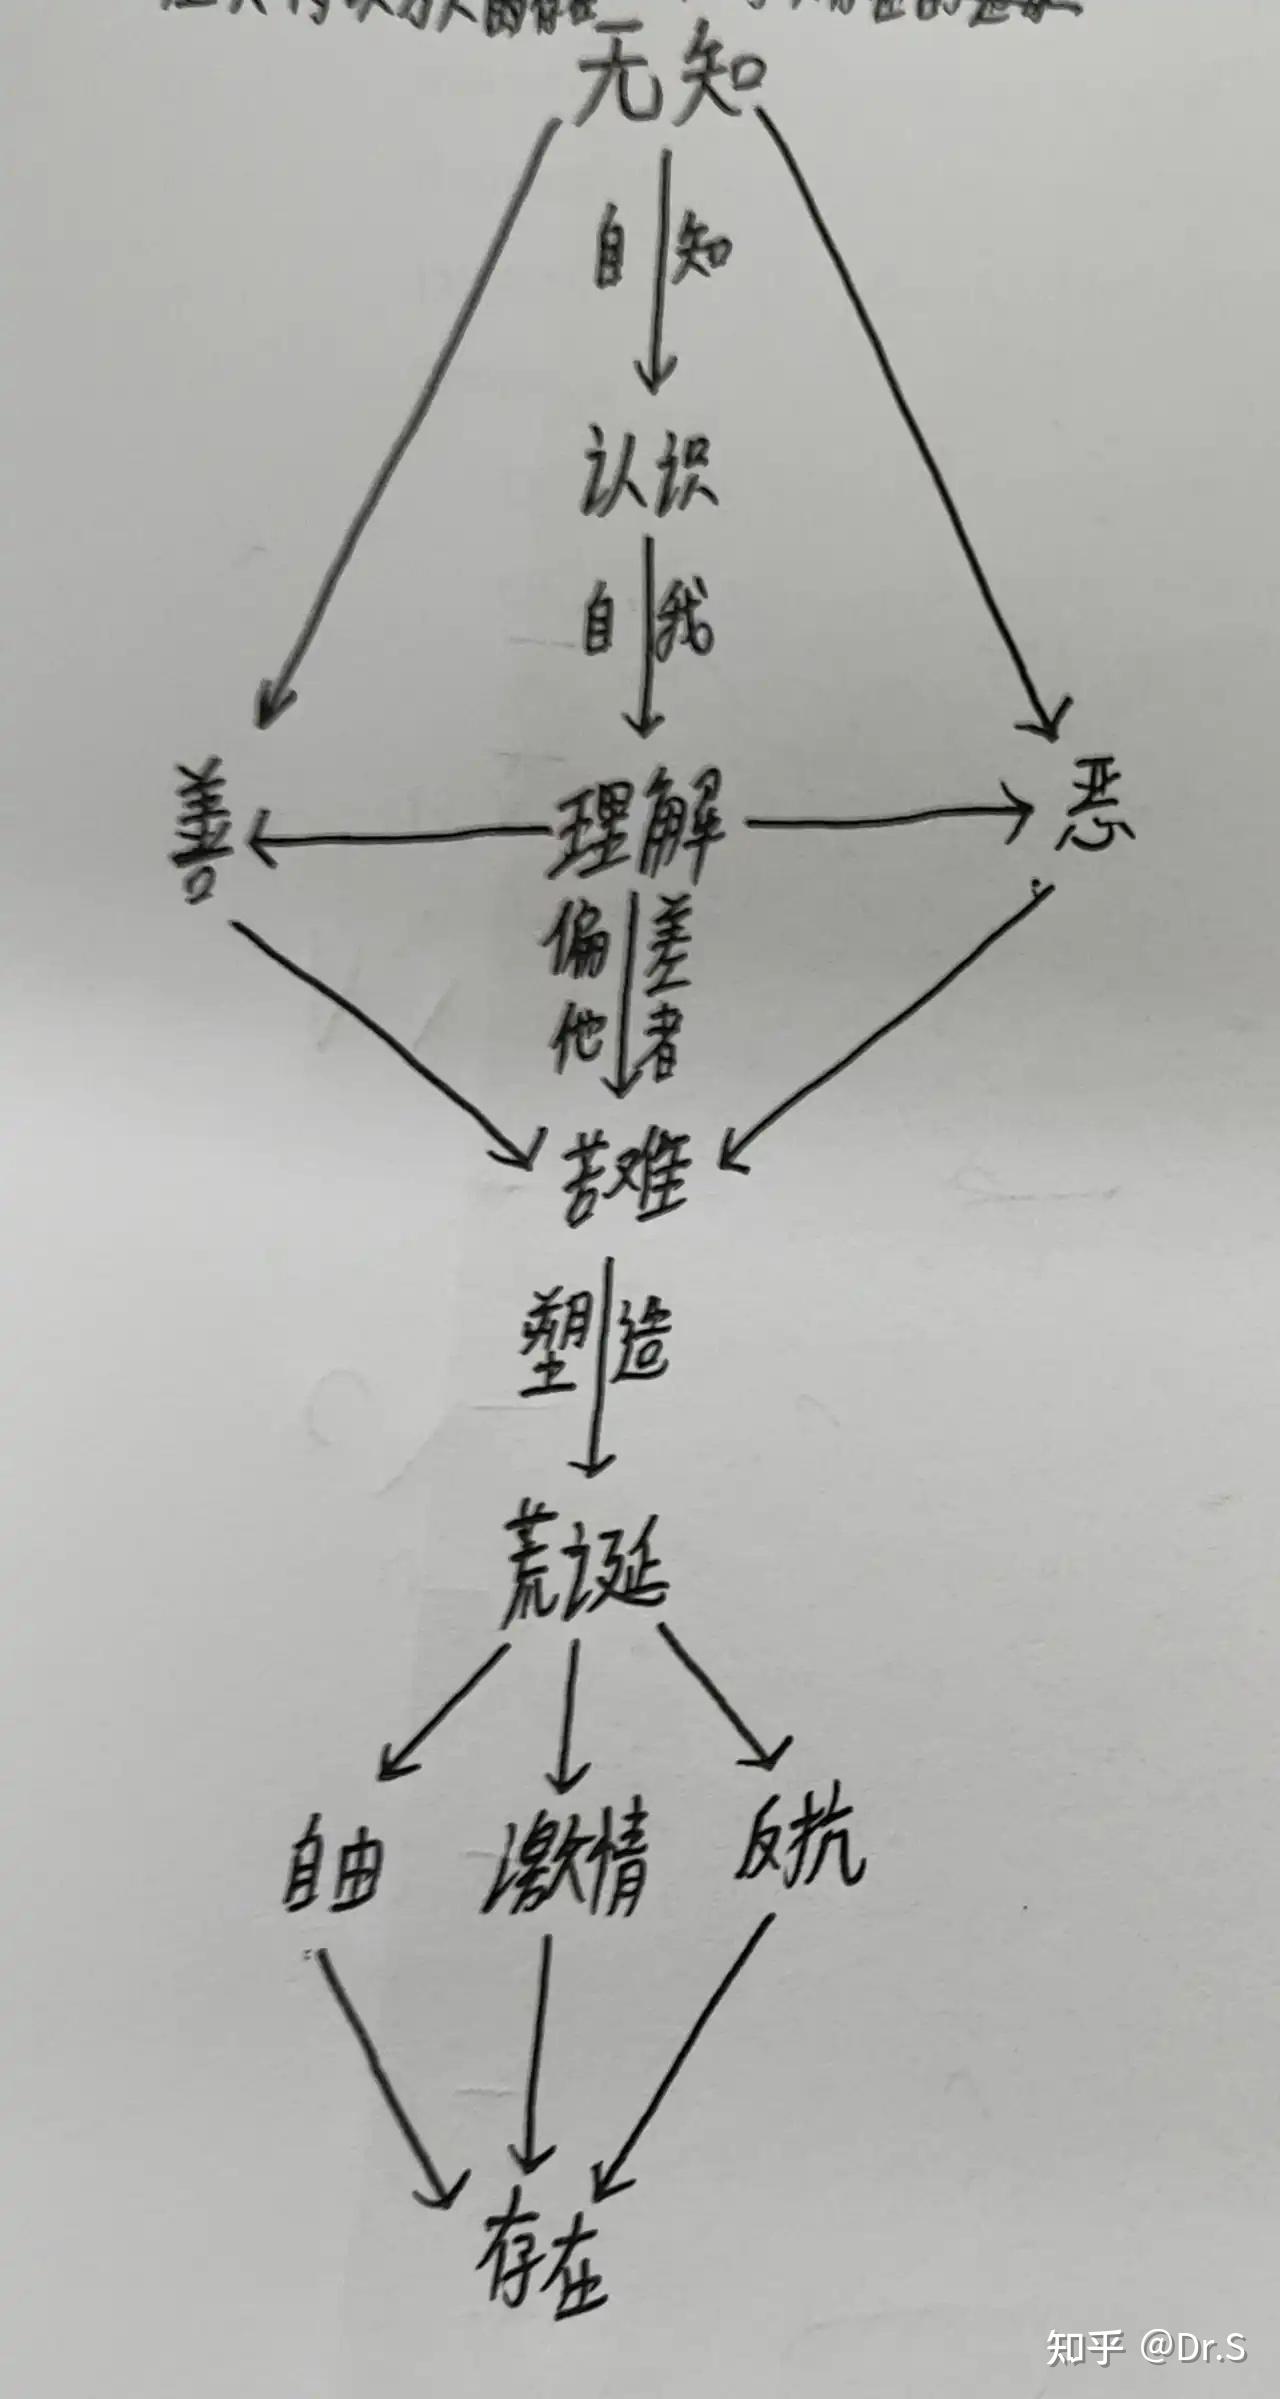 无知
自知
认识
自我
善 理解 恶
偏差
他者
苦难
塑造
荒诞
自由 激情 反抗
存在
知乎 @Dr.S